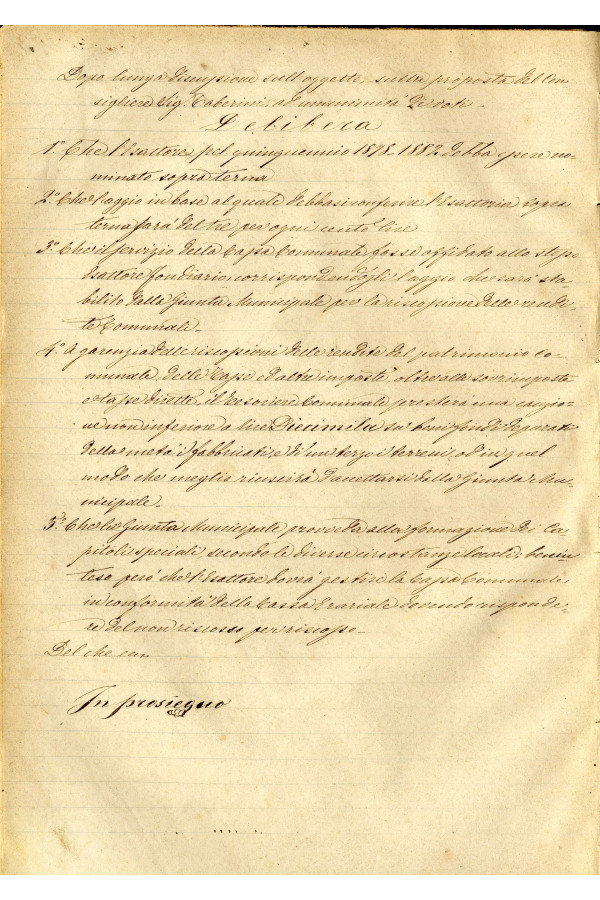 Dopo lunga discussione sull'oggetto, sulla proposta del Con
sigliere Sig. Taberini ad unanimità di voti.
Delibera
1.º Che l'Esattore pel quinquennio 1878. 1882 debba essere no-
minato sopra terna
2.º Che l'aggio in base al quale debbasi conferire l'Esattoria sopra
terna sarà del tre per ogni cento lire
3.º Che il servizio della Cassa Comunale fosse affidato allo stesso
Esattore fondiario, corrispondendogli l'aggio che sarà sta-
bilito dalla Giunta Municipale per la riscossione delle rendi-
te Comunali.
4.º A garenzia delle riscossioni delle rendite del patrimonio Co-
munale, delle Tasse ed altre imposte, oltre alle sovrimposte
e tasse dirette, il Tesoriere Comunale presterà una cauzio-
ne non inferiore a lire Diecimila su' beni fondi
della metà i fabbricati, e di un terzo i terreni, od in quel
modo che meglio riuscirà d'accettarsi dalla Giunta Mu-
nicipale.
5.º Che la Giunta Municipale provveda alla formazione dei Ca-
pitoli speciali secondo le diverse circostanze locali; benin-
teso però che l'Esattore dovrà gestire la Cassa Comunale
in conformità della Cassa Erariale dovendo risponde-
re del non riscosso per riscosso.
Del che
In prosieguo